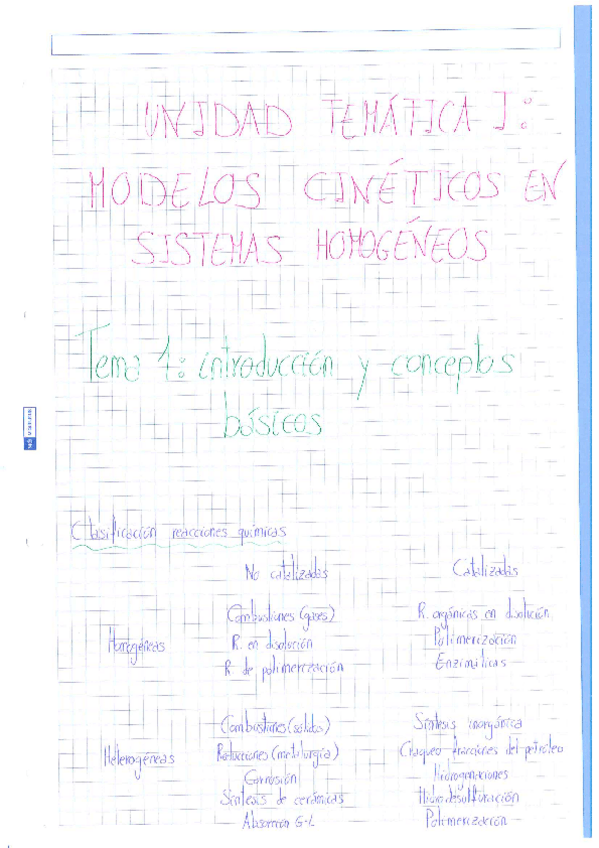 UNIDAD TEMÁTICA I:
MODELOS CINÉTICOS EN
SISTEMAS HOMOGÉNEOS
Tema 1: introducción y conceptos
básicos
Clasificación reacciones químicas
No catalizadas Catalizadas
Homogéneas
Combustiones (gases) R. orgánicas en disolución
R. en disolución Polimerización
R. de polimerización Enzimáticas
Heterogéneas
Combustiones (sólidos) Síntesis inorgánica
Reducciones (metalurgia) Craqueo fracciones del petróleo
Corrosión Hidrogenaciones
Síntesis de cerámicas Hidrodesulfuración
Absorción G-L Polimerización